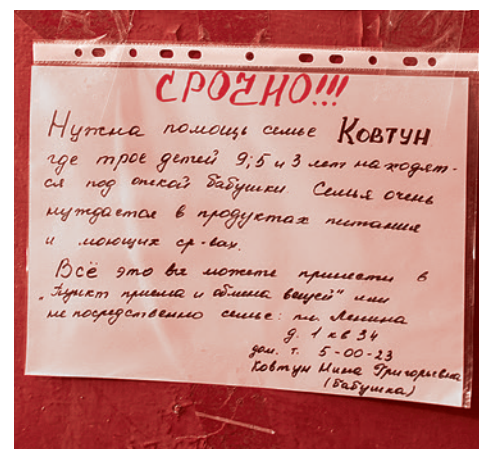 СРОЧНО!!!
Нужна помощь семье КОВТУН
где трое детей 9; 5 и 3 лет находят-
ся под опекой бабушки Семья очень
нуждается в продуктах питания
и моющих ср-вах.
Всё это вы можете принести в
„Пункт приема и обмена вещей" или
непосредственно семье: пл. Ленина
д. 1 кв 34
дом. т. 5-00-23
Ковтун Нина Григорьевна
(бабушка)